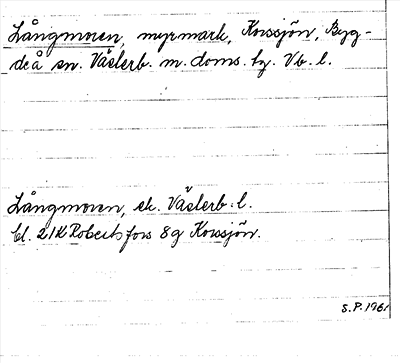 Långmoren, myrmark, Korssjön, Byg-
deå sn. Västerb. m. doms. bg. Vb. l.
Långmoren, ek. Västerb. l.
bl. 21K Robertsfors 8g Korssjön.
S.P. 1961